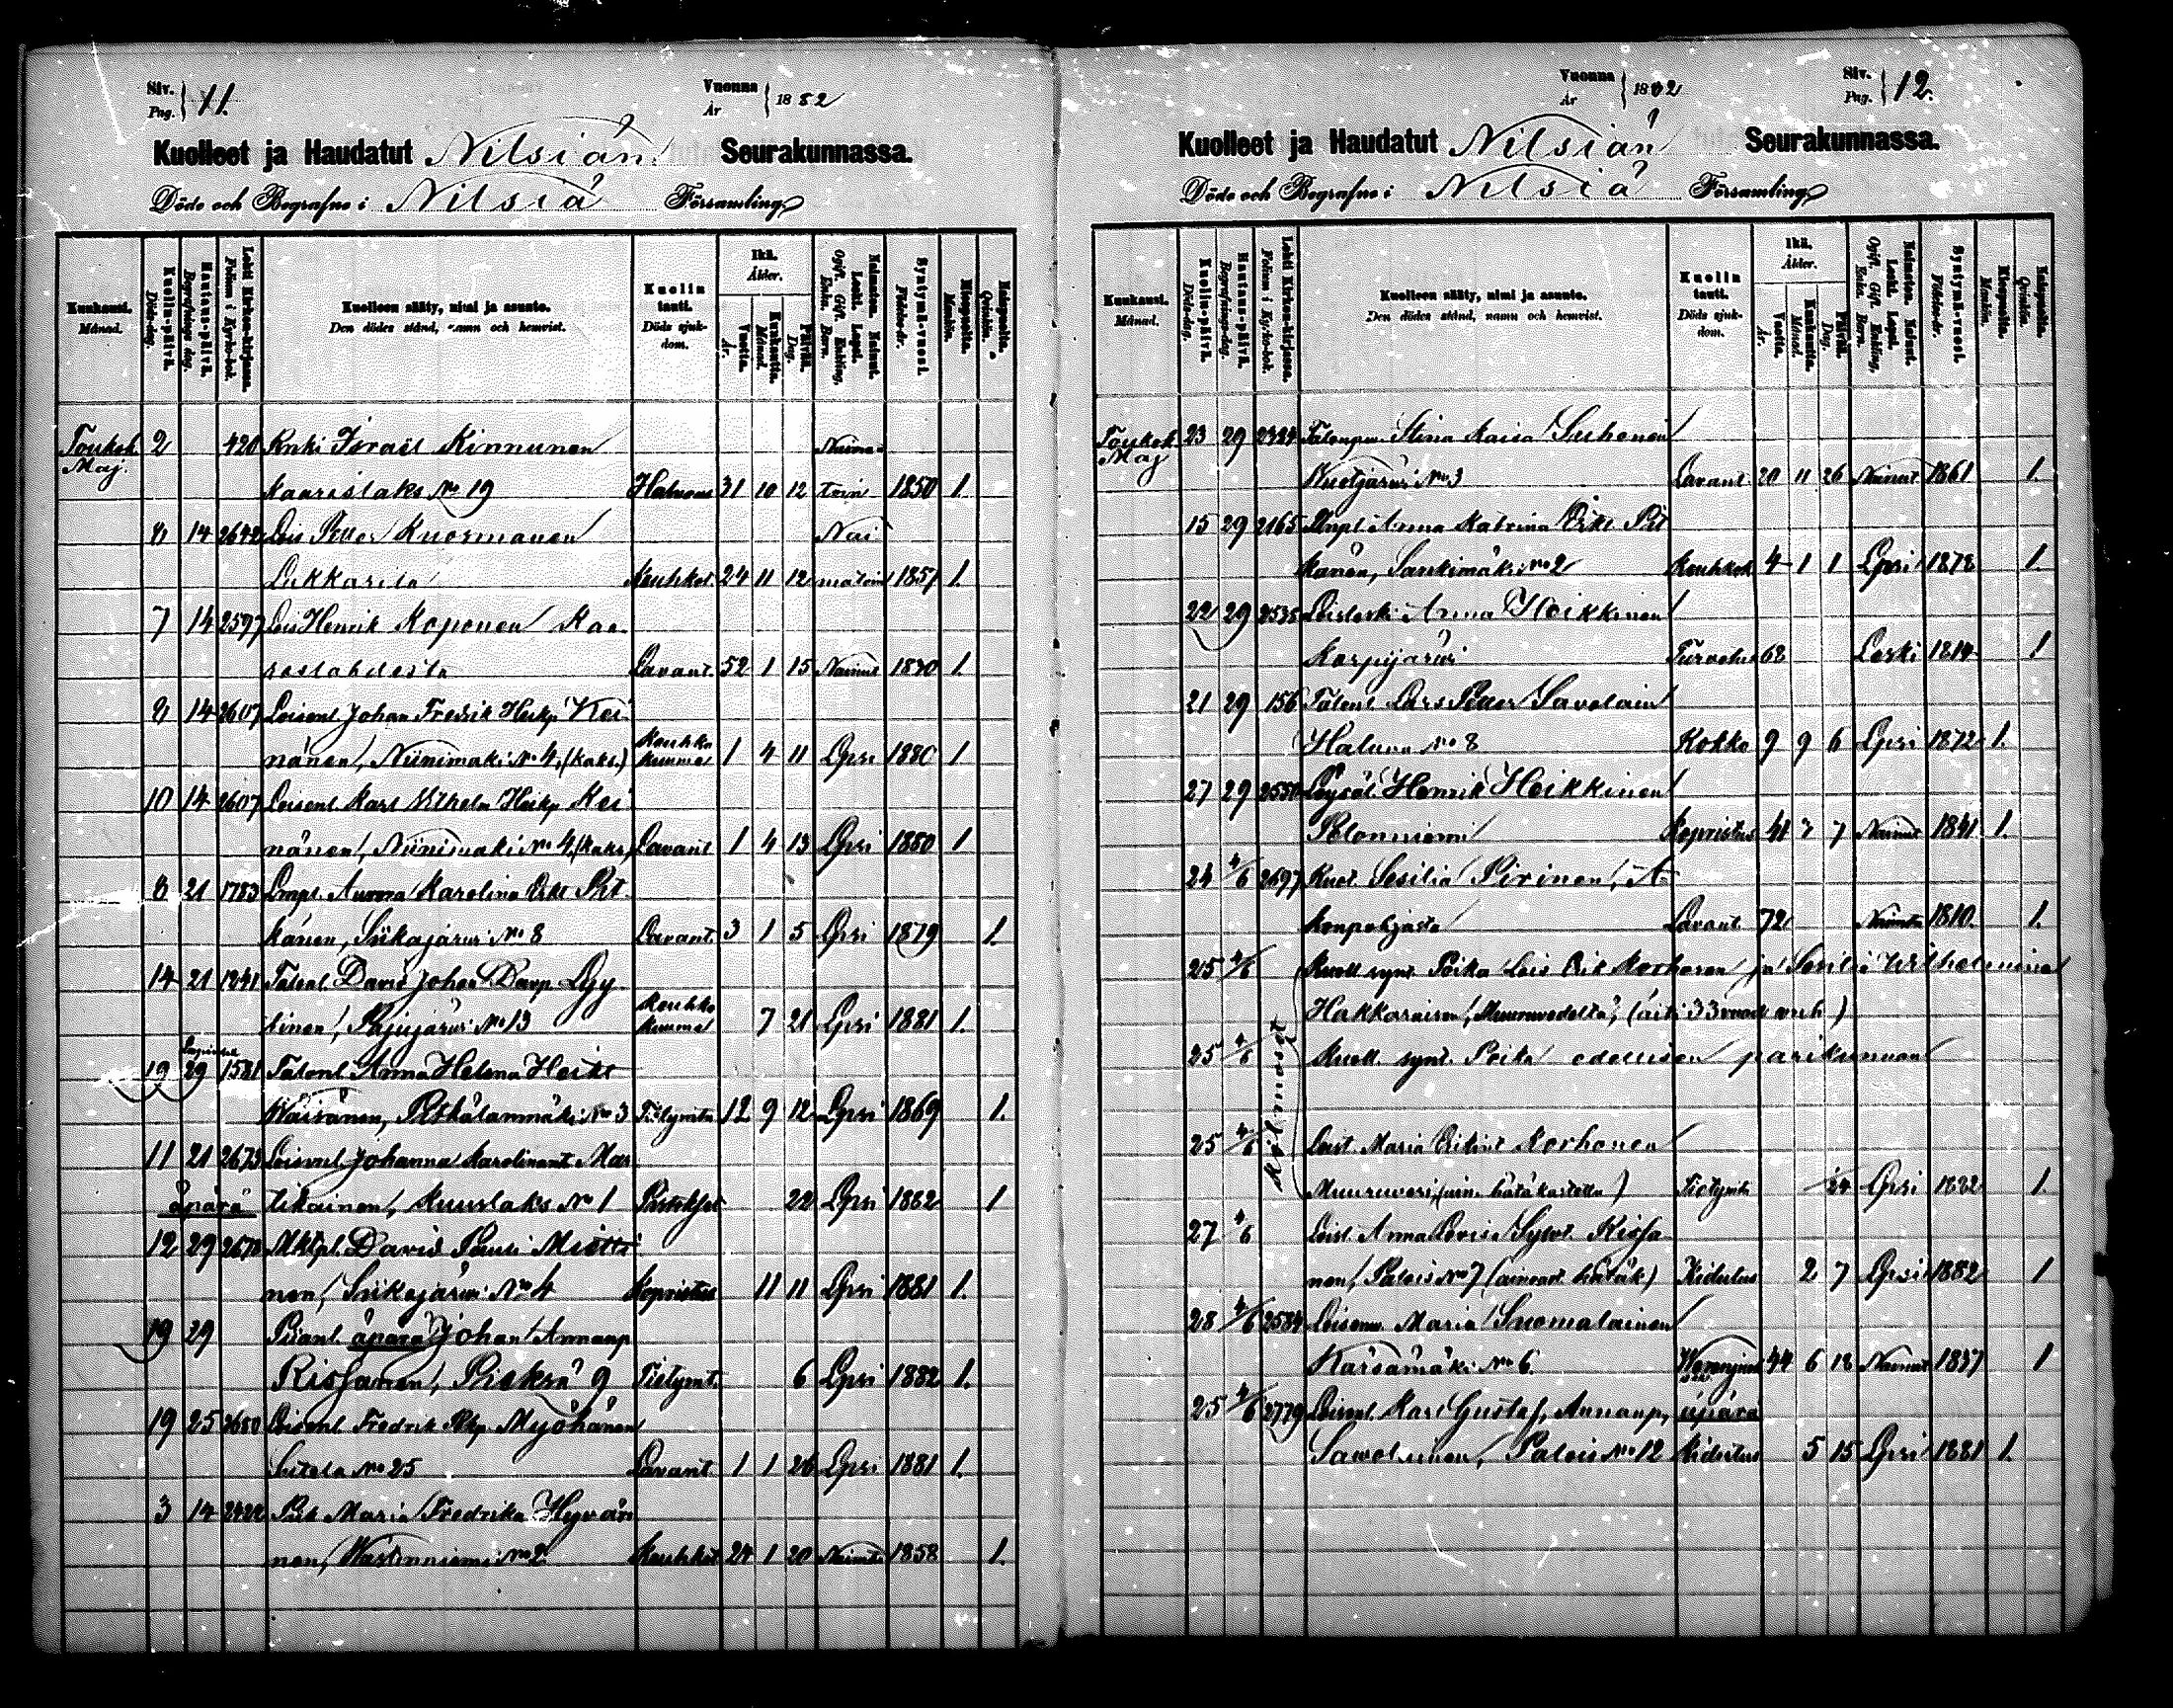 Siv. Pag. } 11. Vuonna År } 1882
Kuolleet ja Haudatut Nilsiän Seurakunnassa.
Döde och Begrafne i Nilsiä Församling
Kuukausi. Månad. Kuolin-päivä. Döds-dag. Hautaus-päivä. Begrafnings dag. Lehti Kirkon-kirjassa. Folium i Kyrko-bok. Kuolleen sääty, nimi ja asunto. Den dödes stånd, namn och hemvist. Kuolin tauti. Döds sjukdom. Ikä. Ålder. Vuotta. År. Kuukautta. Månad. Päivää. Dag. Naimaton. Nainut. Leski. Lapsi. Ogift. Gift. Enkling. Enka. Barn. Syntymä-vuosi. Födelse-år. Miespuolta. Mankön. Vaimopuolta. Qvinkön.
Toukok 2 420 Israël Kinnunen
Maj.
Kaarislaks No 19 31 10 12 1850 1.
8 14 2642 Lois Petter Kuosmanen Nai
Lukkarila Keuhkot 24 11 12 1857 1.
7 14 2597 Lois Henrik Koponen Kaa
roslahdesta Lavant. 52 1 15 Nainut 1830 1.
8 14 2607 Loisenl Johan Fredrik Heikp Kei
Keuhko
nänen, Niinimäki No 4, (kaks.) kuume 1 4 11 Lpsi 1880 1
10 14 2607 Loisenl Karl Wilhelm Heikp Kei
nänen, Niinimäki No 4, (kaks.) Lavant 1 4 13 Lpsi 1880 1
8 21 1783 Karolina Pit
känen, Siikajärvi No 8 Lavant. 3 1 5 Lpsi 1879 1.
14 21 1241 Talenl David Johan Davp Lyy
Keuhko
kinen, Pajujärvi No 13 kuume 7 21 Lpsi 1881 1.
19 29 1581 Talenl Anna Helena Heikt
Väisänen, Pitkälanmäki No 3 12 9 12 Lpsi 1869 1.
11 21 2673 Loisenl Johanna Karolinant Mar
äpärä tikainen, Kuuslaks No 1 22 Lpsi 1882 1
12 29 2670 David Pauli Mietti
nen, Siikajärvi No 4 Kopristus 11 11 Lpsi 1881 1.
19 29 äpärä Johan Annanp
Rissanen, Pieksä 9 Tietymt. 6 Lpsi 1882 1.
19 25 2680 Loisenl Fredrik Myöhänen
Sutela No 25 Lavant 1 1 26 Lpsi 1881 1.
3 14 2422 Maria Fredrika Hyvän
nen, No 2 Keuhkot 24 1 20 1858 1.
Vuonna År } 1882 Siv. Pag. } 12.
Kuolleet ja Haudatut Nilsiän Seurakunnassa.
Döde och Begrafne i Nilsiä Församling
Kuukausi. Månad. Kuolin-päivä. Döds-dag. Hautaus-päivä. Begrafnings-dag. Lehti Kirkon-kirjassa. Folium i Kyrko-bok. Kuolleen sääty, nimi ja asunto. Den dödes stånd, namn och hemvist. Kuolin tauti. Döds sjukdom. Ikä. Ålder. Vuotta. År. Kuukautta. Månad. Päivää. Dag. Naimaton. Nainut. Leski. Lapsi. Ogift. Gift. Enkling. Enka. Barn. Syntymä-vuosi. Födelse-år. Miespuolta. Mankön. Vaimopuolta. Qvinkön.
Toukok 23 29 2324 Stina Kaisa Suhonen
Maj
Kuotjärvi No 3 Lavant 20 11 26 Nainut 1861 1.
15 29 2165 Anna Katrina Erkt Pit
känen, Sänkimäki No 2 Keuhkok 4 1 1 Lpsi 1878 1
22 29 2535 Loisleski Anna Heikkinen
Korpijärvi Turvotus 68 Leski 1814 1
21 29 156 Talenl Lars Petter Savolain
Haluna No 8 Kokko 9 9 6 Lpsi 1872 1.
27 29 2550 Henrik Heikkinen
Polonniemi Kopristus 41 7 7 Nainut 1841 1.
24 4/6 2697 Ruot. Sesilia Pirinen, A
konpohjasta Lavant. 72 1810. 1.
25 4/6 Kuoll synt Poika Lois Erik Korhonen ja Sesilia Wilhelmina
Hakkaraisen, Muuruvedeltä, (äiti 33 vuod vnh)
25 4/6 Kuoll. synt. Poika edellisen pariskunnan
kolmoset
25 4/6 Maria Erikint Korhonen
Muuruvesi, hätäkastettu) Tietymt 1/24 Lpsi 1882 1.
27 4/6 Loisl Anna Lovisa Sylvt Rissa
nen, Palois No 7 Kidutus 2 7 Lpsi 1882 1
28 4/6 2584 Loisenv. Maria Suomalainen
Karsämäki No 6. 44 6 18 Nainut 1837 1
25 4/6 2779 Loisenl. Karl Gustaf, Annanp, äpärä
Savolainen, Palois No 12 Kidutus 5 15 Lpsi 1881 1.